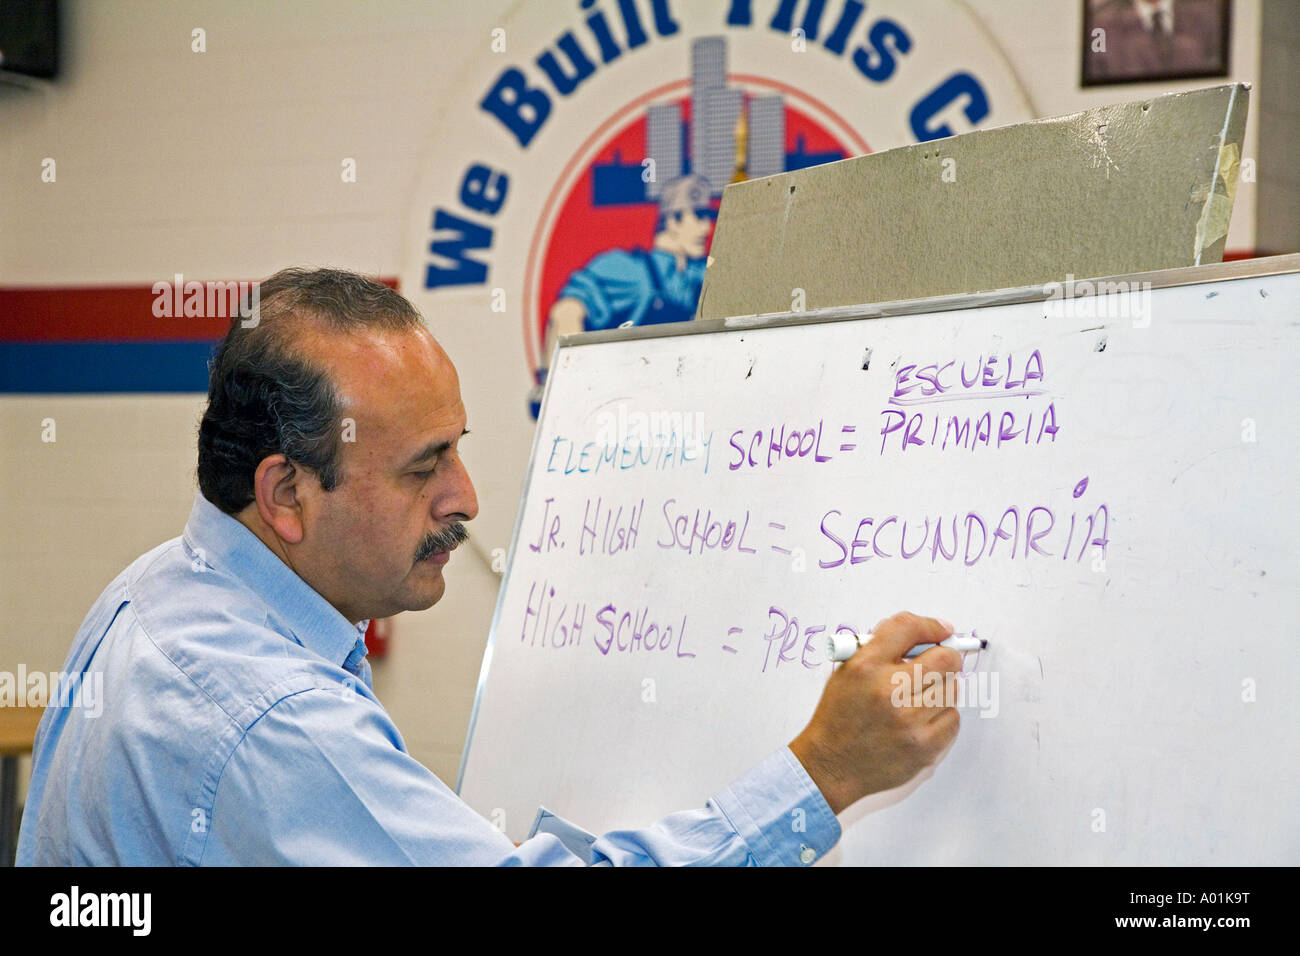 We Built This
ESCUELA
ELEMENTARY SCHOOL = PRIMARIA
JR. HIGH SCHOOL = SECUNDARIA
HIGH SCHOOL =
alamy
Image ID: A01K9T
www.alamy.com